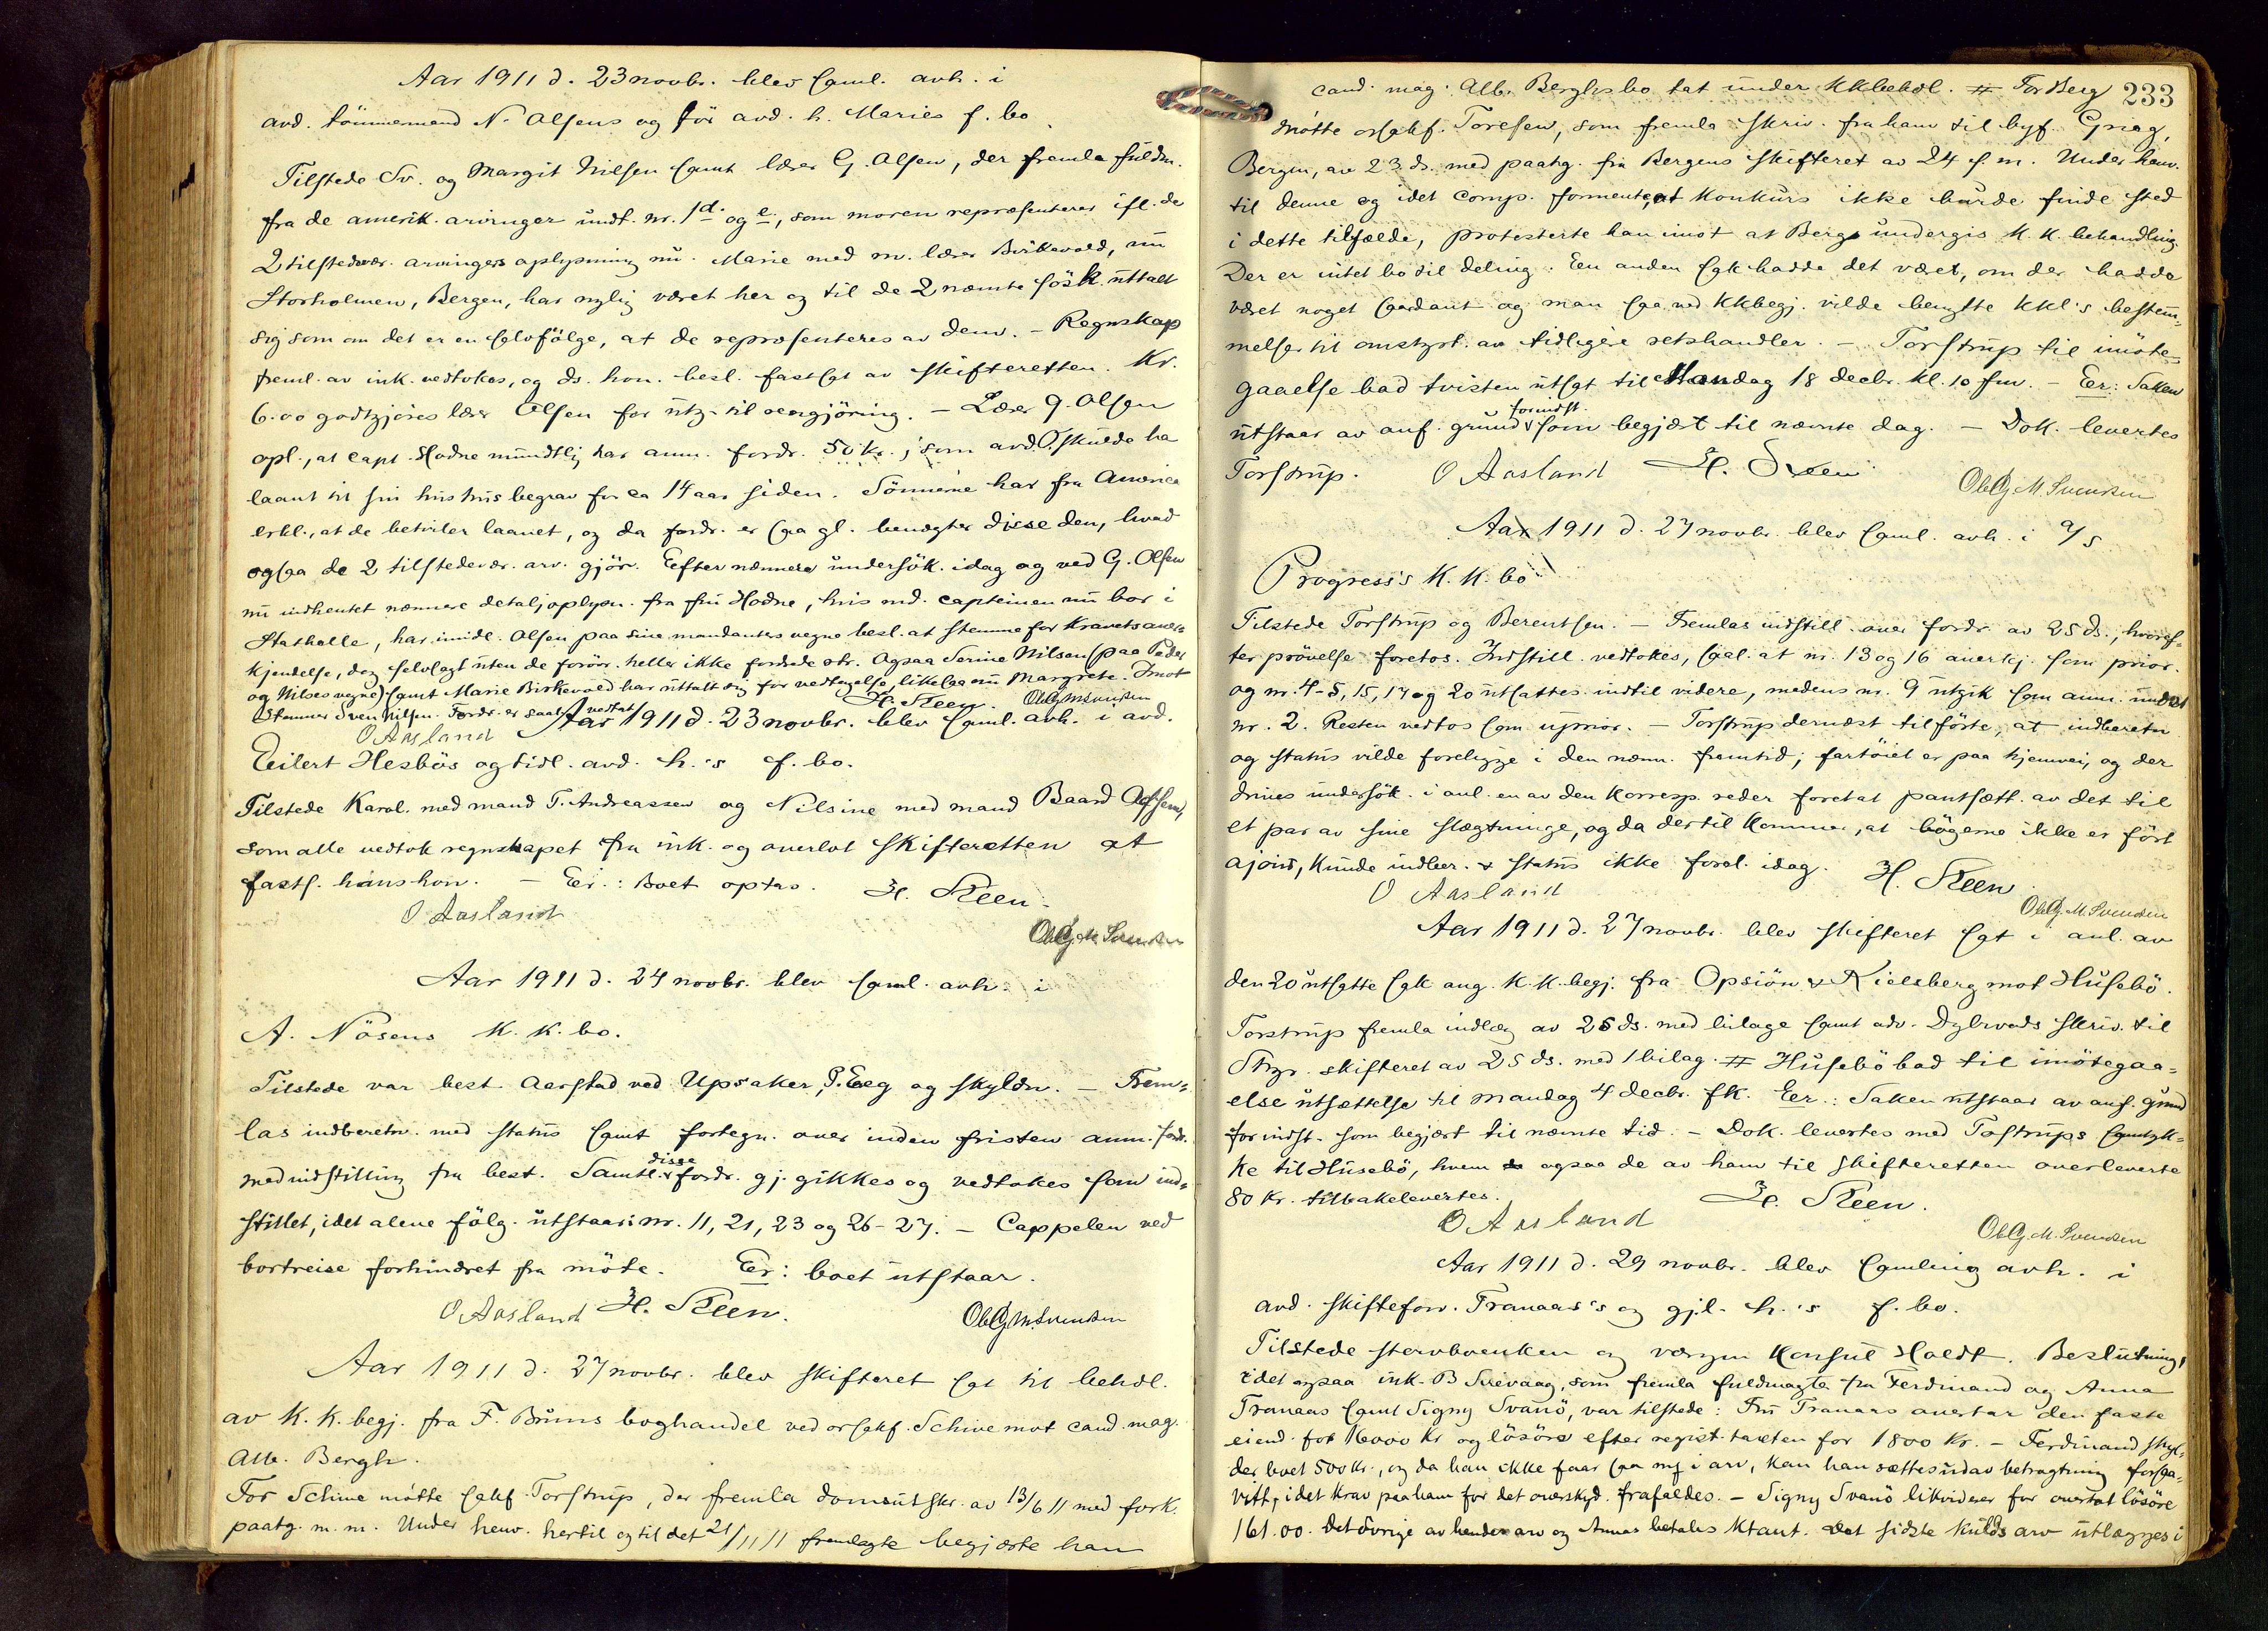 Aar 1911 d. 23 novbr. blev saml. avh. i
avd. tömmermand N. Olsens og för avd. h. Maries f. bo.
Tilstede Sv. og Margit Nilsen samt lærer G. Olsen, der fremla fuldm.
fra de amerik. arvinger undt. nr. 1 d. og e., som moren repræsenterer ifl. de
2 tilstedevær. arvingers oplysning nu. Marie med m. lærer Birkevold, nu
Storholmen, Bergen, har nylig været her og til de 2 nævnte søsk. uttalt
sig som om det er en selvfölge, at de repræsenteres av dem. – Regnskap
freml. av ink. vedtokes, og ds. hon. besl. fastsat av skifteretten. Kr.
6.00 godtgjöres lærer Olsen for utg. til rengjöring. – Lærer G. Olsen
opl., at capt. Hodne mundtlig har anm. fordr. 50 kr., som avd. O. skulde ha
laant til sin hustrus begrav. for ca 14 aar siden. Sönnerne har fra America
erkl., at de betviler laanet, og da fordr. er saa gl. benægter disse den, hvad
ogsaa de 2 tilstedevær. arv. gjör. Efter nærmere undersök. idag og ved G. Olsen
nu indhentet nærmere detaljoplysn. fra fru Hodne, hvis md. capteinen nu bor i
Stathelle, har imidl. Olsen paa sine mandanters vegne besl. at stemme for kravets aner-
kjendelse, dog selvsagt uten de forövr. heller ikke fordrede rtr. Ogsaa Serine Nilsen (paa Peder
og Nilses vegne) samt Marie Birkevold har uttalt sig for vedtagelse, likesaa nu Margrete. Imot
stemmer Sven Nilsen. Fordr. er saal. vedtat. H. Steen. Ole G. M. Svendsen
O Aasland Aar 1911 d. 23 novbr. blev saml. avh. i avd.
Eilert Hesbös og tidl. avd. h.'s f. bo.
Tilstede Karol. med mand T. Andreassen og Nilsine med mand Baard
som alle vedtok regnskapet fra ink. og overlot skifteretten at
fasts. hans hon. – Er.: Boet optas. H. Steen.
O Aasland
Ole G. M. Svendsen
Aar 1911 d. 24 novbr. blev saml. avh. i
A. Nösens K. K. bo.
Tilstede var best. Aarstad ved Upsaker, P. Eeg og skyldn. – Frem-
las indberetn. med status samt fortegn. over inden fristen anm. fordr.
med indstilling fra best. Samtl. disse fordr. gj. gikkes og vedtokes som ind-
stillet, idet alene fölg. utstaar: nr. 11, 21, 23 og 26-27. – Cappelen ved
bortreise forhindret fra möte. Er: boet utstaar.
O. Aasland H. Steen. Ole G. M. Svendsen
Aar 1911 d. 27 novbr. blev skifteret sat til behdl.
av K. K. begj. fra F. Bruns boghandel ved orsakf. Schive mot cand. mag.
Alb. Bergh.
For Schive mötte sakf. Torstrup, der fremla domsutskr. av 13/6 11 med fork.
paateg. m. m. Under henv. hertil og til det 21/11 11 fremlagte begjærte han
233
cand. mag. Alb. Berghs bo tat under KKbehdl. # For Berg
mötte orsakf. Toresen, som fremla skriv. fra ham til byf. Grieg,
Bergen, av 23 ds. med paatg. fra Bergens skifteret av 24 s. m. Under henv.
til denne og idet comp. formente, at konkurs ikke burde finde sted
i dette tilfælde, protesterte han imot at Bergs undergis K. K. behandling.
Der er intet bo til deling. En anden sak hadde det været, om der hadde
været noget saadant og man saa ved KKbegj. vilde benytte KKl's bestem-
melser til omstyrt. av tidligere retshandler. – Torstrup til imöte-
gaaelse bad tvisten utsat til Mandag 18 decbr. kl. 10 fm. – Eer: Saken
utstaar av anf. grund forindst. som begjært til nævnte dag. – Dok. levertes
Torstrup. O Aasland H. Steen Ole G. M. Svendsen
Aar 1911 d. 27 novbr. blev saml. avh. i A/S
Progress's K. K. bo
Tilstede Torstrup og Berentsen. – Fremlas indstill. over fordr. av 25 ds., hvoref-
ter prövelse foretos. Indstill. vedtokes, saal. at nr. 13 og 16 anerkj. som prior.
og nr. 4-5, 15, 17 og 20 utsattes indtil videre, medens nr. 9 utgik som anm. under
nr. 2. Resten vedtos som uprior. – Torstrup dernæst tilförte, at indberetn.
og status vilde foreligge i den nærm. fremtid; fartöiet er paa hjemvei, og der
drives undersök. i anl. en av den korresp. reder foretat pantsætt. av det til
et par av sine slægtninge, og da dertil kommer, at bögerne ikke er fört
ajour, kunde indber. & status ikke forel. idag. H. Steen
O Aasland Ole G. M. Svendsen
Aar 1911 d. 27 novbr. blev skifteret sat i anl. av
den 20 utsatte sak ang. K. K. begj. fra Opsiön & Kielsberg mot Husebö.
Torstrup fremla indlæg av 25 ds. med bilage samt adv. Dybwads skriv. til
Stvgr. skifteret av 25 ds. med 1 bilag. # Husebö bad til imötegaa-
else utsættelse til mandag 4 decbr. fk. Eer.: Saken utstaar av anf. grund
forindst. som begjært til nævnte tid. – Dok. levertes med Tostrups samtyk-
ke til Husebö, hvem ogsaa de av ham til skifteretten overleverte
80 kr. tilbakelevertes. H. Steen.
O Aasland Ole G. M. Svendsen
Aar 1911 d. 29 novbr. blev samling avh. i
avd. skifteforv. Tranaas's og gjl. h.'s f. bo.
Tilstede stervboenken og værgen konsul Holdt. Beslutning,
idet ogsaa ink. B Snevaag, som fremla fuldmagter fra Ferdinand og Anna
Tranaas samt Signy Svanö, var tilstede: Fru Tranaas overtar den faste
eiend. for 16000 kr og lösöre efter regist. taxten for 1800 kr. – Ferdinand skyl-
der boet 500 kr., og da han ikke faar saa mg i arv, kan han sættes utav betragtning forsaa-
vidt, idet krav paa ham for det overskyd. frafaldes. – Signy Svanö likviderer for overtat lösöre
161.00. Det övrige av hendes arv og Annas betales ktant. Det sidste kulds arv utlægges i